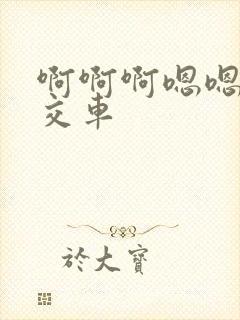 啊啊啊嗯嗯
交车
於大寶